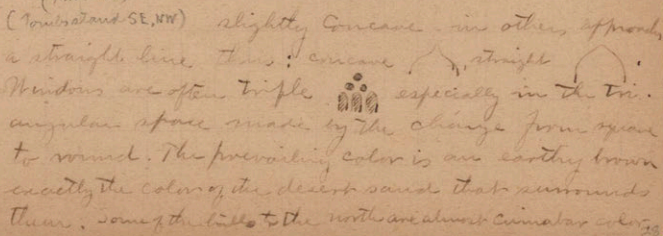 (Tombs stand SE, NW) slightly concave - in others approach
a straight line thus: concave straight .
Windows are often triple especially in the tri-
angular space made by the change from square
to round. The prevailing color is an earthy brown
exactly the color of the desert sand that surrounds
them. Some of the hills to the north are almost cinnabar color.
28